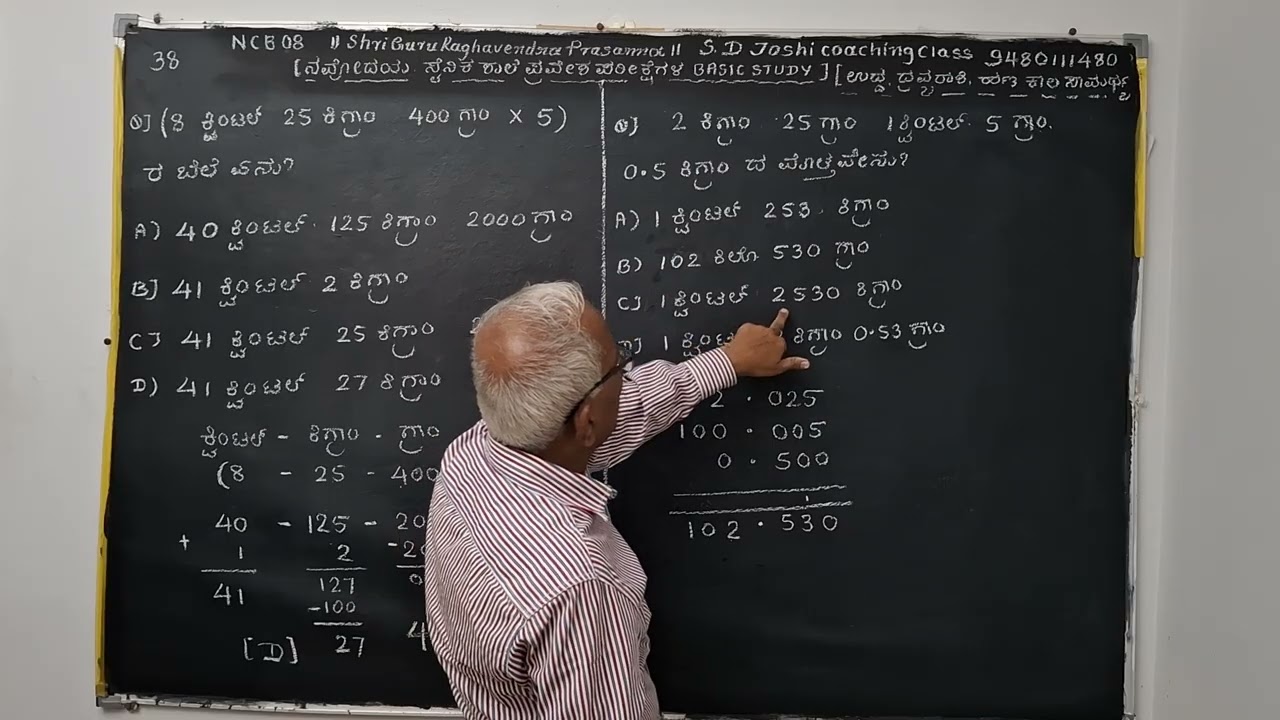 38
NCB08 || Shri Guru Raghavendra Prasanna || S.D Joshi coaching class 9480111480
[ನವೋದಯ ಸೈನಿಕ ಶಾಲೆ ಪ್ರವೇಶ ಪರೀಕ್ಷೆಗಳ BASIC STUDY] [ಉದ್ದ, ದ್ರವ್ಯರಾಶಿ, ಹಣ ಕಾಲ ಸಾಮರ್ಥ್ಯ
Q] (8 ಕ್ವಿಂಟಲ್ 25 ಕಿಗ್ರಾಂ 400 ಗ್ರಾಂ × 5)
ರ ಬೆಲೆ ಏನು?
A) 40 ಕ್ವಿಂಟಲ್ 125 ಕಿಗ್ರಾಂ 2000 ಗ್ರಾಂ
B] 41 ಕ್ವಿಂಟಲ್ 2 ಕಿಗ್ರಾಂ
C) 41 ಕ್ವಿಂಟಲ್ 25 ಕಿಗ್ರಾಂ
D) 41 ಕ್ವಿಂಟಲ್ 27 ಕಿಗ್ರಾಂ
ಕ್ವಿಂಟಲ್ - ಕಿಗ್ರಾಂ - ಗ್ರಾಂ
(8 - 25 - 400
40 - 125 - 20
+ 1 2 -2
41 127 0
-100
[D] 27 4
Q) 2 ಕಿಗ್ರಾಂ 25 ಗ್ರಾಂ 1 ಕ್ವಿಂಟಲ್ 5 ಗ್ರಾಂ.
0.5 ಕಿಗ್ರಾಂ ದ ಮೊತ್ತವೇನು?
A) 1 ಕ್ವಿಂಟಲ್ 253 ಕಿಗ್ರಾಂ
B) 102 ಕಿಲೋ 530 ಗ್ರಾಂ
C] 1 ಕ್ವಿಂಟಲ್ 2530 ಕಿಗ್ರಾಂ
D] 1 ಕ್ವಿಂಟಲ್ ಕಿಗ್ರಾಂ 0.53 ಗ್ರಾಂ
2 . 025
100 . 005
0 . 500
1
102 . 530